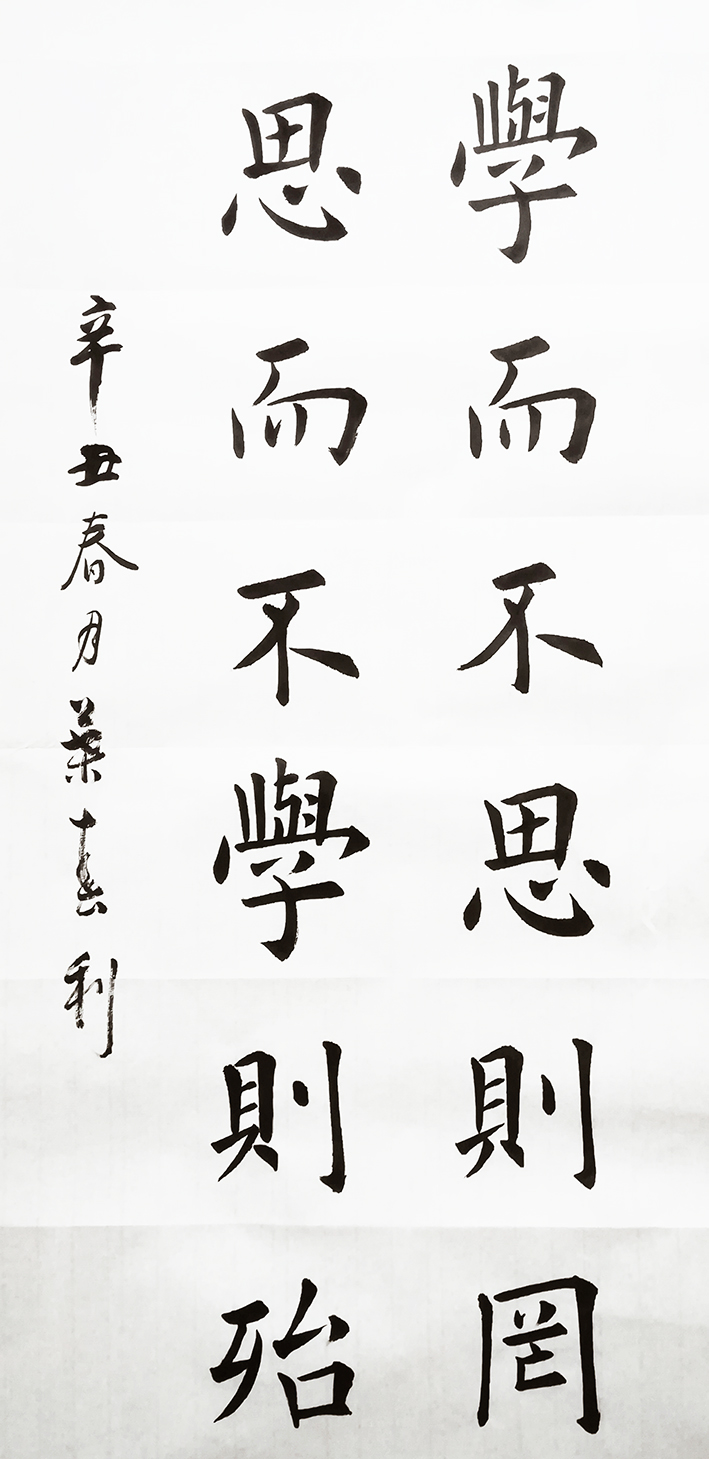 學而不思則罔
思而不學則殆
辛丑春月葉春利